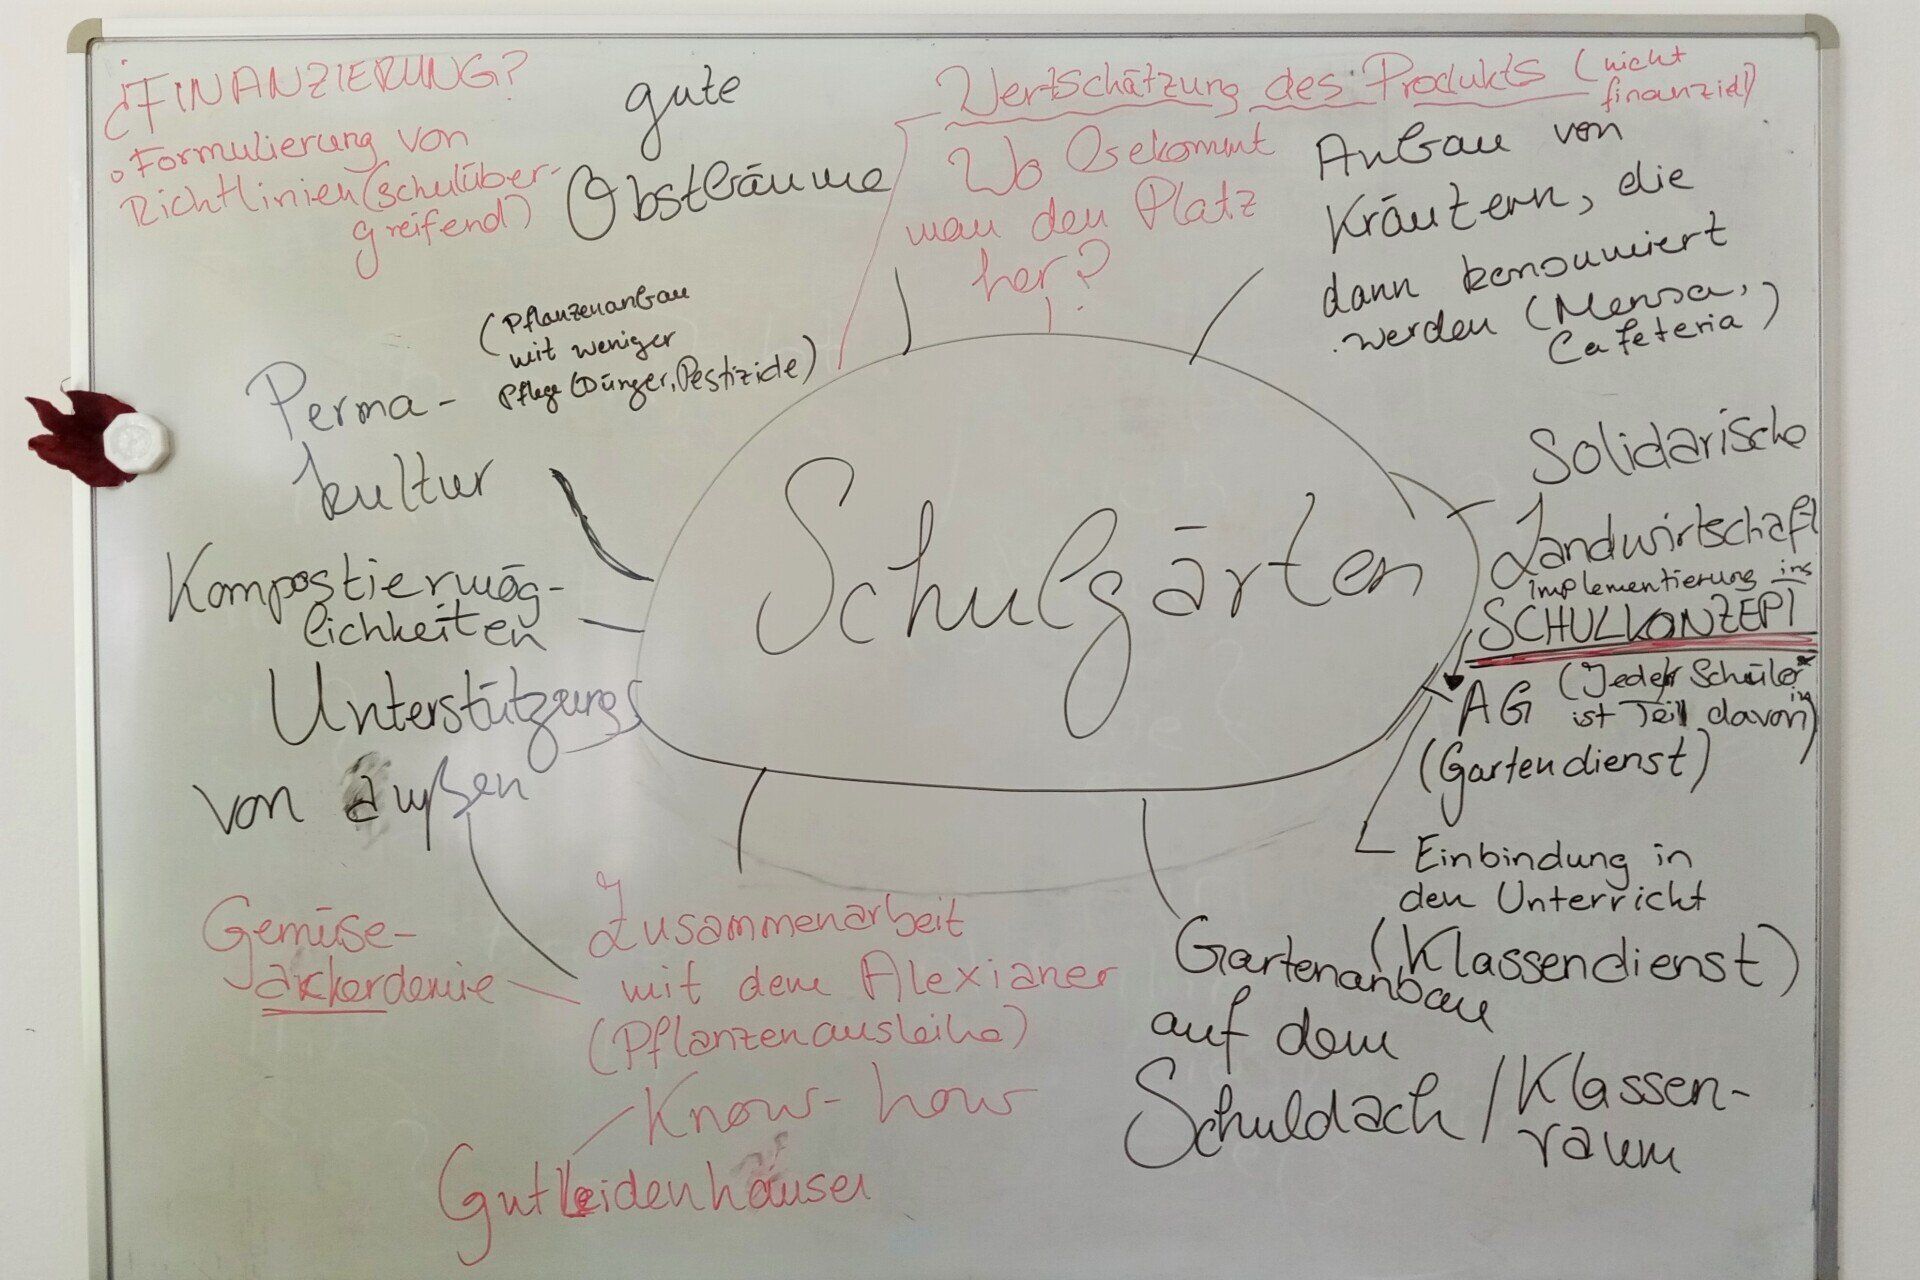 ¿FINANZIERUNG?
o Formulierung von
Richtlinien (schulüber-
greifend)
gute
Obstbäume
Wertschätzung des Produkts (nicht
finanziell)
Wo bekommt
man den Platz
her?
Anbau von
Kräutern, die
dann konsumiert
werden (Mensa,
Cafeteria)
Perma-
kultur
(Pflanzenanbau
mit weniger
Pflege (Dünger, Pestizide)
Kompostiermög-
lichkeiten
Unterstützung
von außen
Schulgärten
Solidarische
Landwirtschaft
Implementierung ins
SCHULKONZEPT
AG (Jeder Schüler*
in
ist Teil davon)
(Gartendienst)
Einbindung in
den Unterricht
(Klassendienst)
Gartenanbau
auf dem
Schuldach / Klassen-
raum
Gemüse-
ackerdemie
Zusammenarbeit
mit dem Alexianer
(Pflanzenausleihe)
Know-how
Gutleidenhäuser